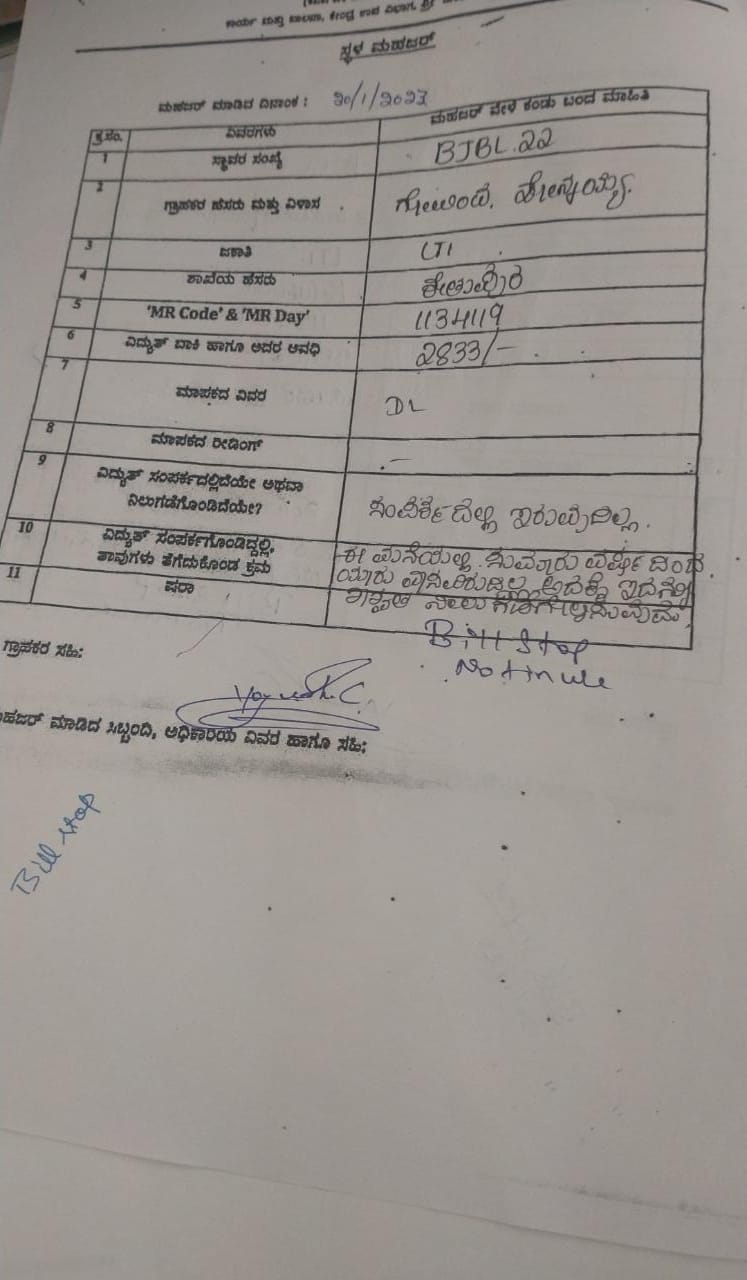 ಕಾರ್ಯ ಮತ್ತು ಪಾಲನಾ, ಕೇಂದ್ರ ಉಪ ವಿಭಾಗ,
ಸ್ಥಳ ಮಹಜರ್
ಮಹಜರ್ ಮಾಡಿದ ದಿನಾಂಕ : 20/1/2023
ಕ್ರ.ಸಂ. ವಿವರಗಳು ಮಹಜರ್ ವೇಳೆ ಕಂಡು ಬಂದ ಮಾಹಿತಿ
1 ಸ್ಥಾವರ ಸಂಖ್ಯೆ BJBL.22
2 ಗ್ರಾಹಕರ ಹೆಸರು ಮತ್ತು ವಿಳಾಸ
3 ಜಕಾತಿ LT1
4 ಶಾಖೆಯ ಹೆಸರು
5 'MR Code' & 'MR Day' 1134119
6 ವಿದ್ಯುತ್ ಬಾಕಿ ಹಾಗೂ ಅದರ ಅವಧಿ 2833/-
7 ಮಾಪಕದ ವಿವರ DL
8 ಮಾಪಕದ ರೀಡಿಂಗ್ -
9 ವಿದ್ಯುತ್ ಸಂಪರ್ಕದಲ್ಲಿದೆಯೇ ಅಥವಾ
ನಿಲುಗಡೆಗೊಂಡಿದೆಯೇ? ಸಂಪರ್ಕದಲ್ಲಿ ಇರುವುದಿಲ್ಲ.
10 ವಿದ್ಯುತ್ ಸಂಪರ್ಕಗೊಂಡಿದ್ದಲ್ಲಿ, ಈ ಮನೆಯಲ್ಲಿ ಸುಮಾರು ವರ್ಷದಿಂದ
ತಾವುಗಳು ತೆಗೆದುಕೊಂಡ ಕ್ರಮ ಯಾರು ಅದಕ್ಕೆ
11 ಷರಾ ಶಾಶ್ವತ
Bill Stop
ಗ್ರಾಹಕರ ಸಹಿ:
ಮಹಜರ್ ಮಾಡಿದ ಸಿಬ್ಬಂದಿ, ಅಧಿಕಾರಿಯ ವಿವರ ಹಾಗೂ ಸಹಿ:
Bill stop